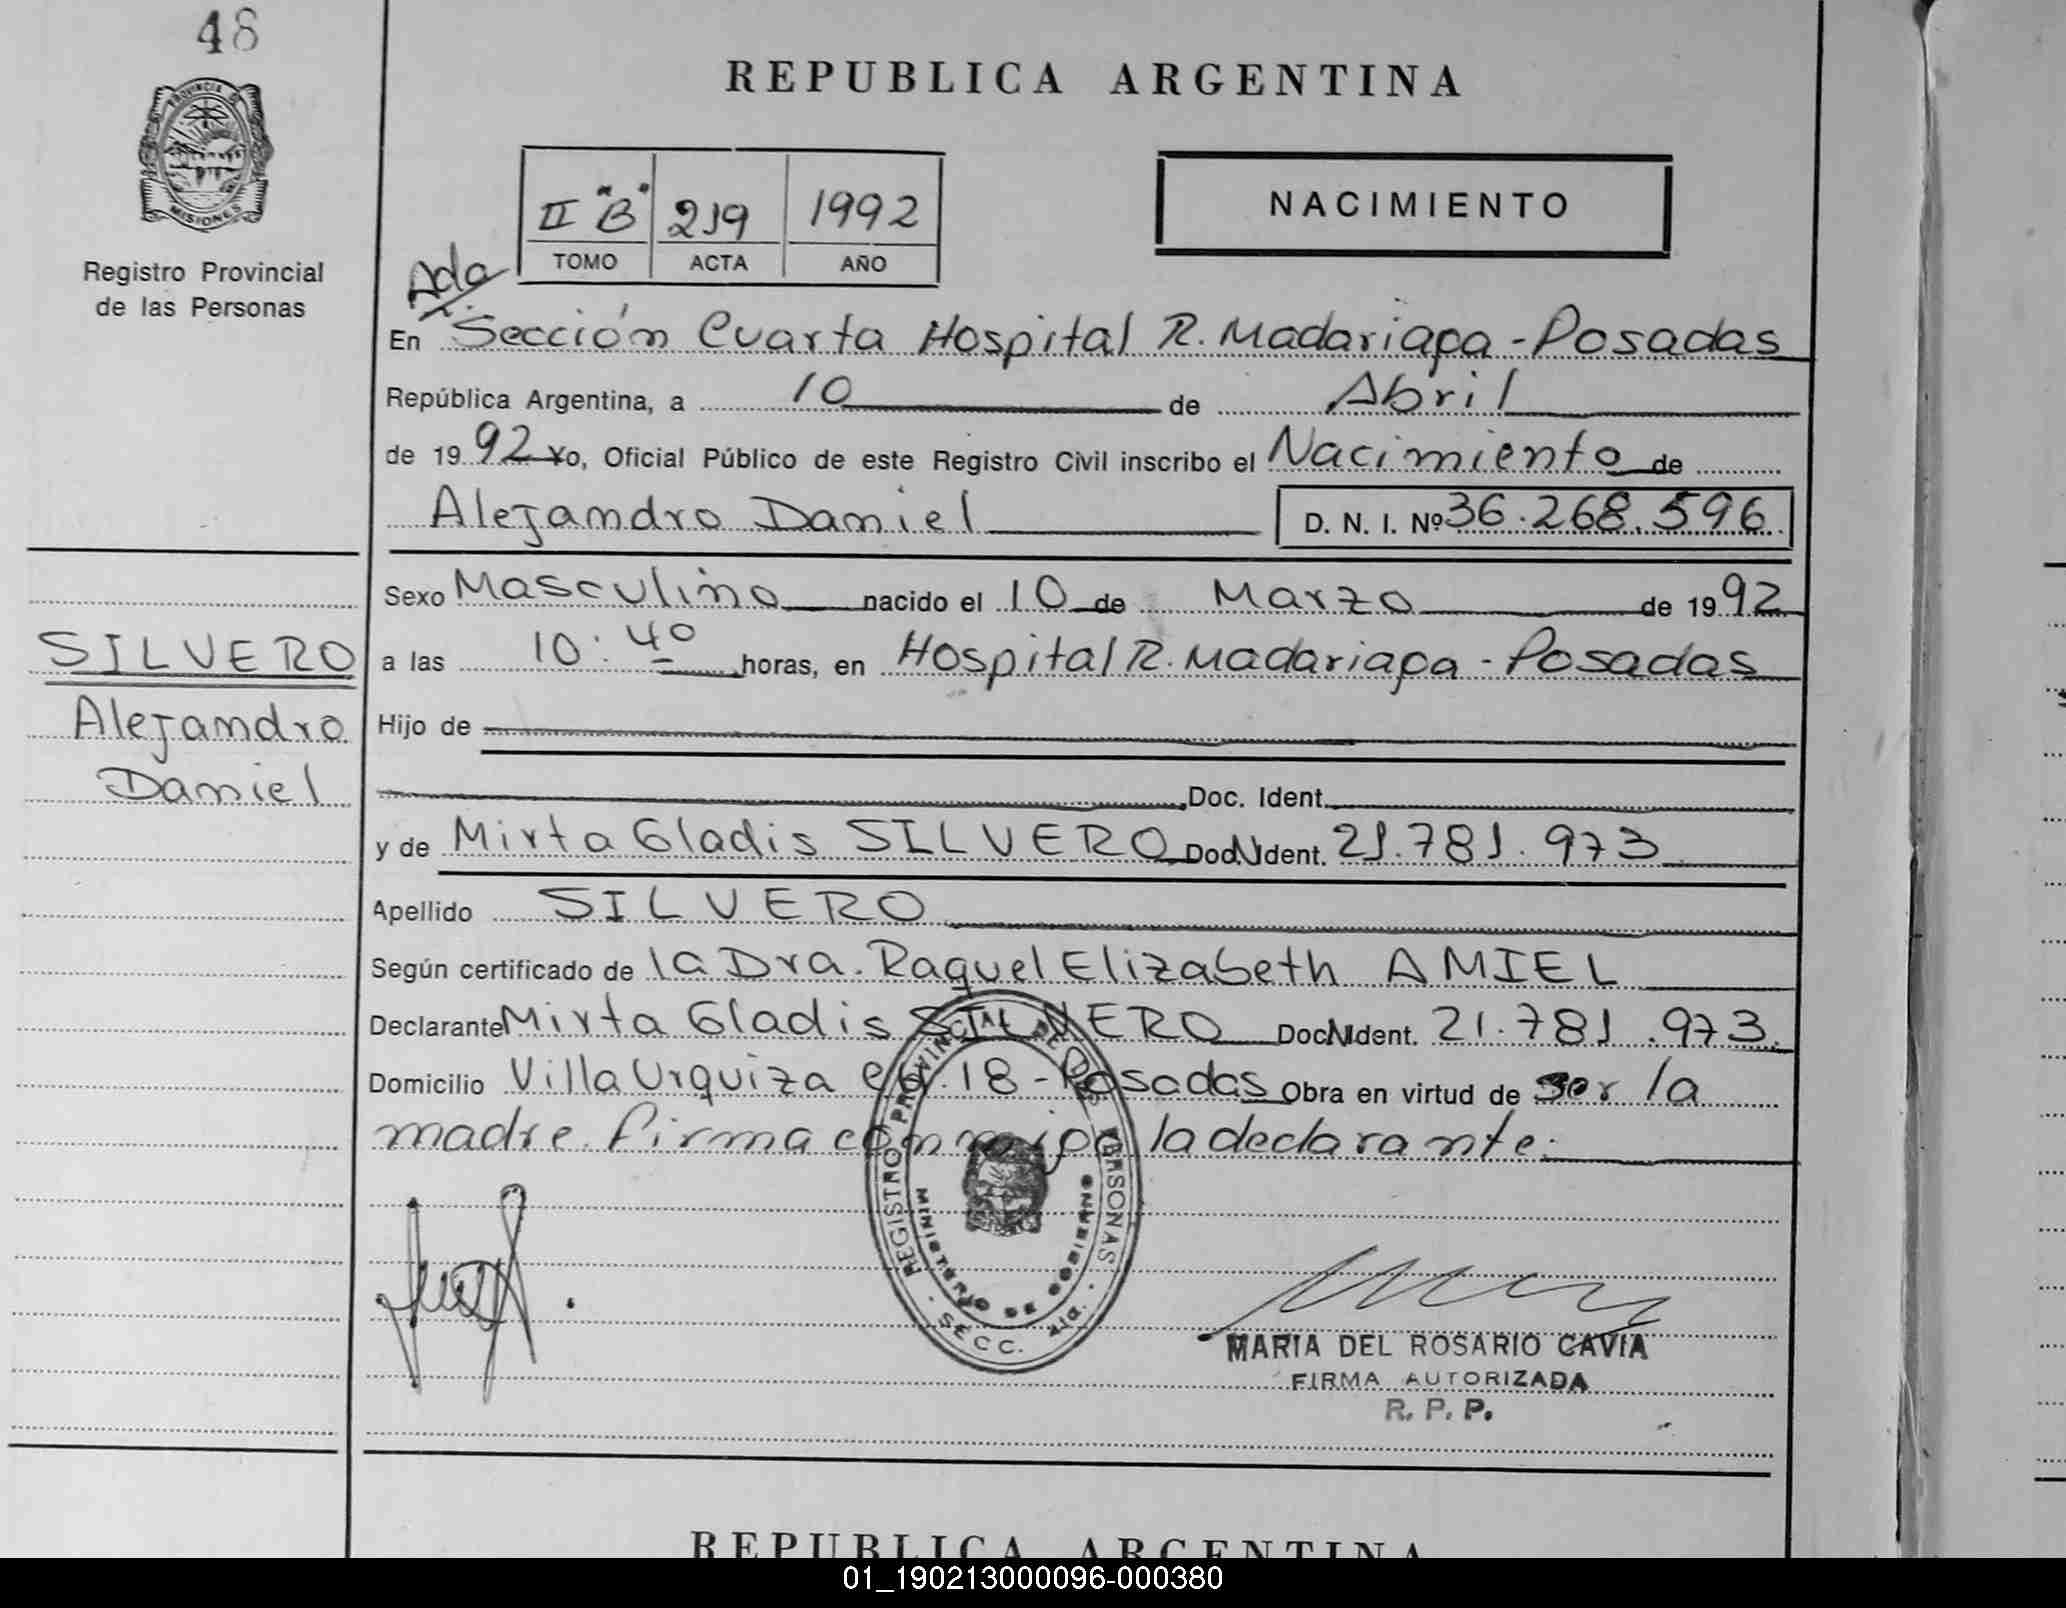 48
PROVINCIA DE
MISIONES
Registro Provincial
de las Personas
REPUBLICA ARGENTINA
II "B" 219 1992
TOMO ACTA AÑO
NACIMIENTO
Ada
En Sección Cuarta Hospital R. Madariaga - Posadas
República Argentina, a 10 de Abril
de 1992 Yo, Oficial Público de este Registro Civil inscribo el Nacimiento de
Alejandro Daniel D. N. I. Nº 36.268.596
Sexo Masculino nacido el 10 de Marzo de 1992
a las 10:40 horas, en Hospital R. Madariaga - Posadas
Hijo de
Doc. Ident.
y de Mirta Gladis SILVERO Doc. Ident. 21.781.973
Apellido SILVERO
Según certificado de la Dra. Raquel Elizabeth AMIEL
Declarante Mirta Gladis SILVERO Doc. Ident. 21.781.973
Domicilio Villa Urquiza 18 - Posadas Obra en virtud de ser la
madre. Firma conmigo la declarante.
SILVERO
Alejandro
Daniel
REGISTRO PROVINCIAL DE LAS PERSONAS
MINISTERIO DE GOBIERNO
SECC.
MARIA DEL ROSARIO CAVIA
FIRMA AUTORIZADA
R. P. P.
REPUBLICA ARGENTINA
01_190213000096-000380